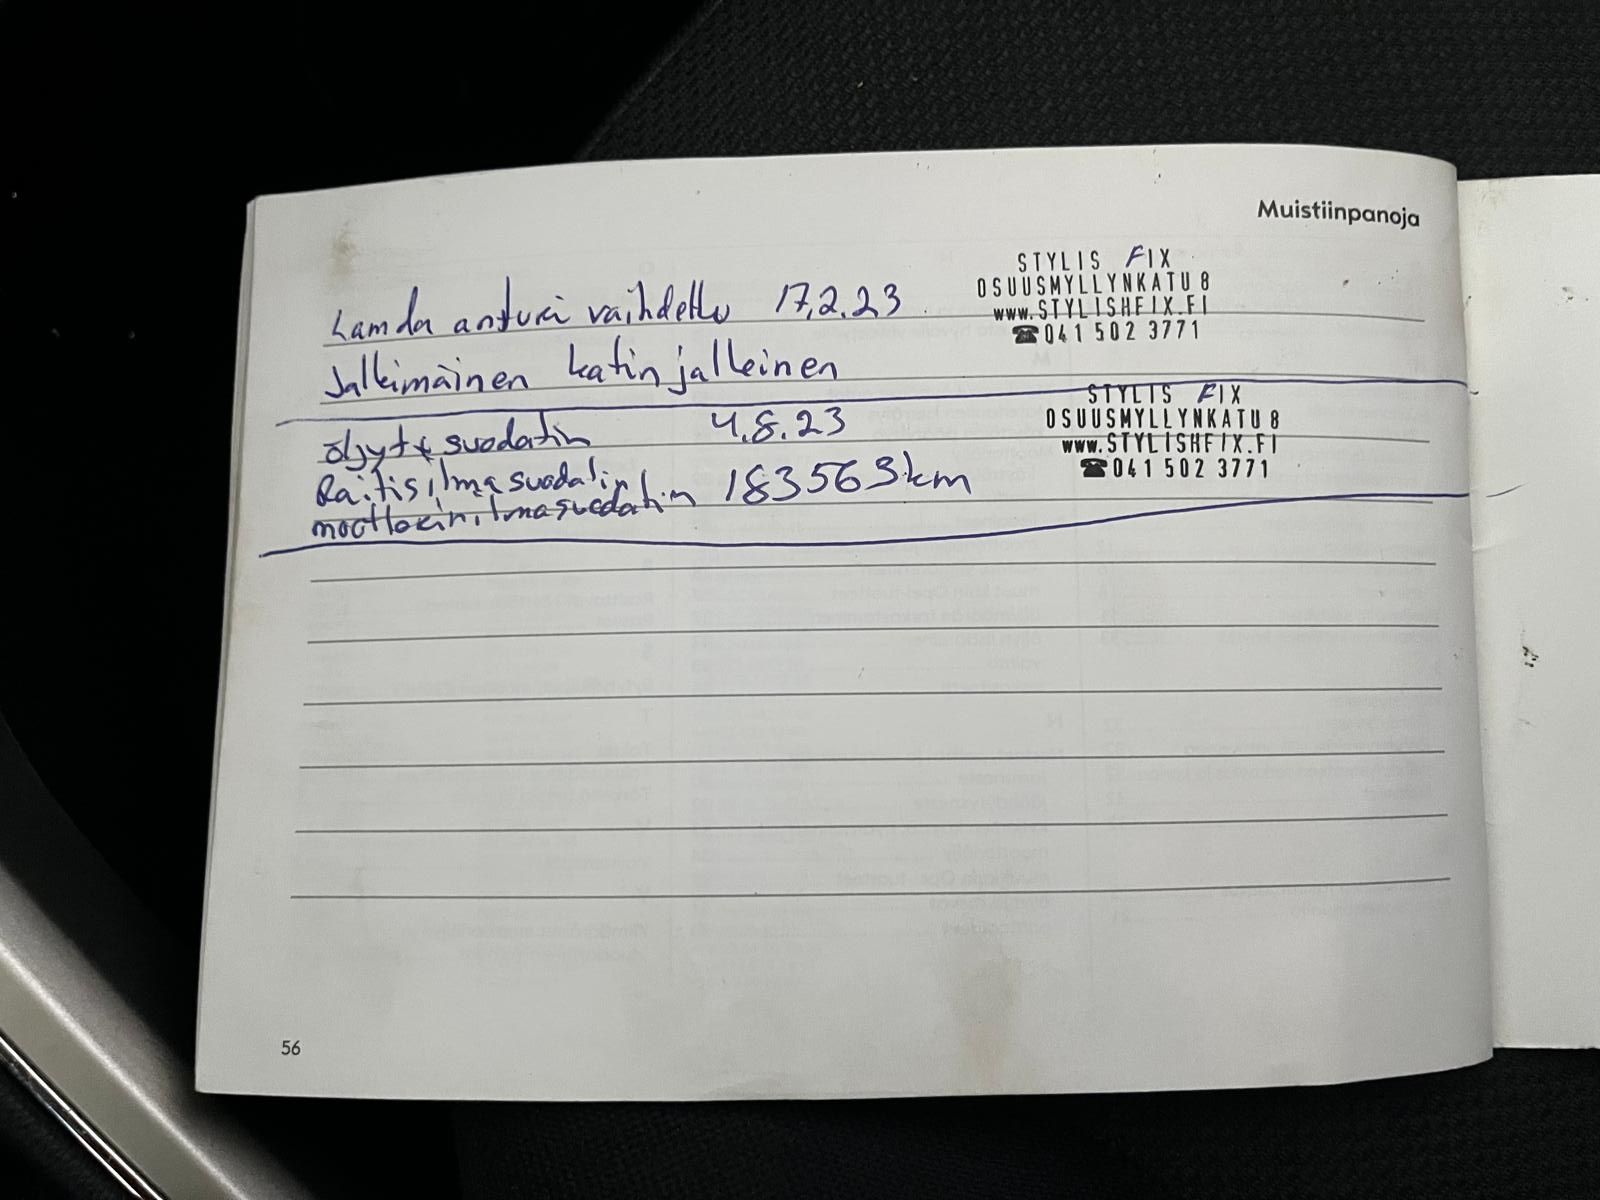 Muistiinpanoja
Lamda anturi vaihdettu 17.2.23
Jälkimäinen katin jälkeinen
STYLIS FIX
OSUUSMYLLYNKATU 8
www.STYLISHFIX.FI
☎041 502 3771
öljyt + suodatin 4.8.23
Raitisilmasuodatin 183563km
moottorin ilmasuodatin
STYLIS FIX
OSUUSMYLLYNKATU 8
www.STYLISHFIX.FI
☎041 502 3771
56